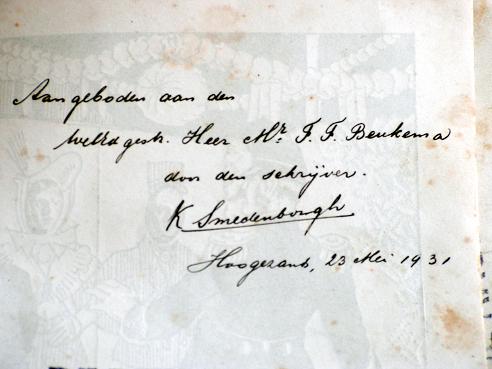 Aangeboden aan den
WelEd gestr. Heer Mr. F. F. Beukema
door den schrijver.
K Smedenborgh
Hoogezand, 23 Mei 1931